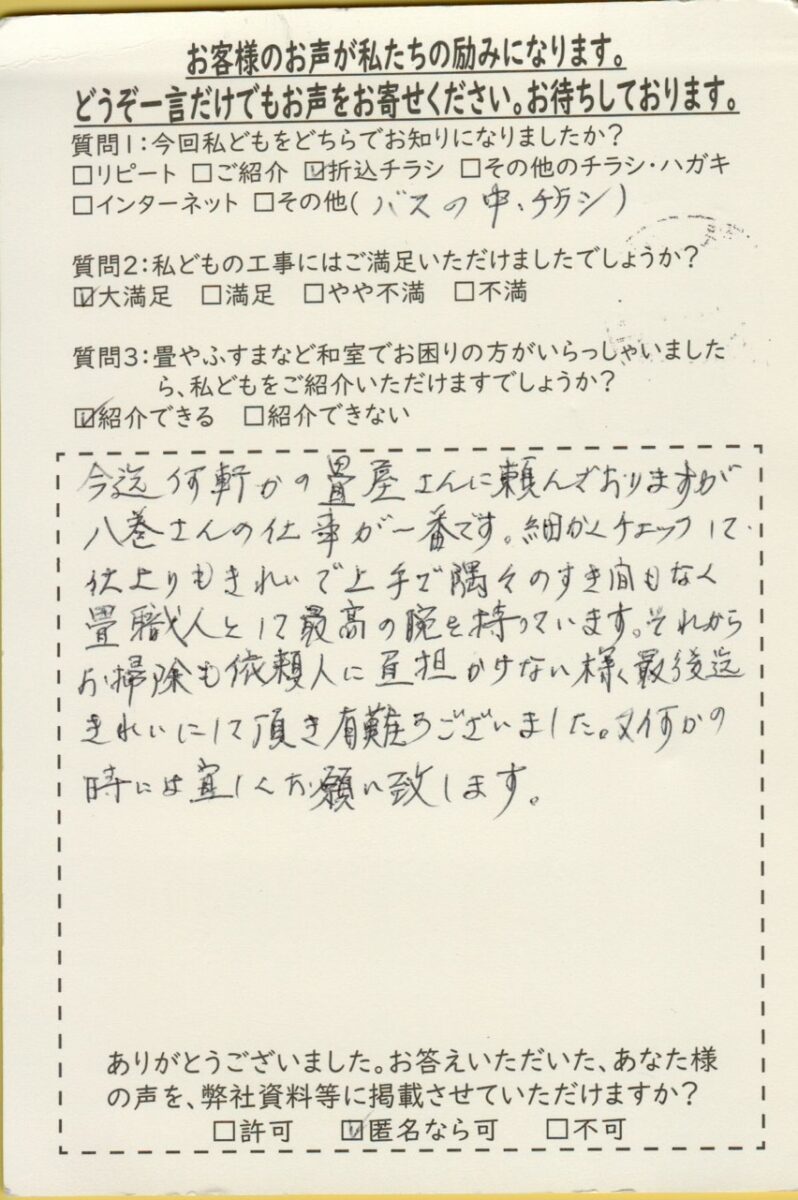 お客様のお声が私たちの励みになります。
どうぞ一言だけでもお声をお寄せください。お待ちしております。
質問1:今回私どもをどちらでお知りになりましたか?
□リピート □ご紹介 ☑折込チラシ □その他のチラシ・ハガキ
□インターネット □その他(バスの中、チラシ)
質問2:私どもの工事にはご満足いただけましたでしょうか?
☑大満足 □満足 □やや不満 □不満
質問3:畳やふすまなど和室でお困りの方がいらっしゃいました
ら、私どもをご紹介いただけますでしょうか?
☑紹介できる □紹介できない
今迄何軒かの畳屋さんに頼んでおりますが
八巻さんの仕事が一番です。細かくチェックして、
仕上りもきれいで上手で隅々のすき間もなく
畳職人として最高の腕を持っています。それから
お掃除も依頼人に負担かけない様、最後迄
きれいにして頂き有難うございました。又何かの
時には宜しくお願い致します。
ありがとうございました。お答えいただいた、あなた様
の声を、弊社資料等に掲載させていただけますか?
□許可 ☑匿名なら可 □不可